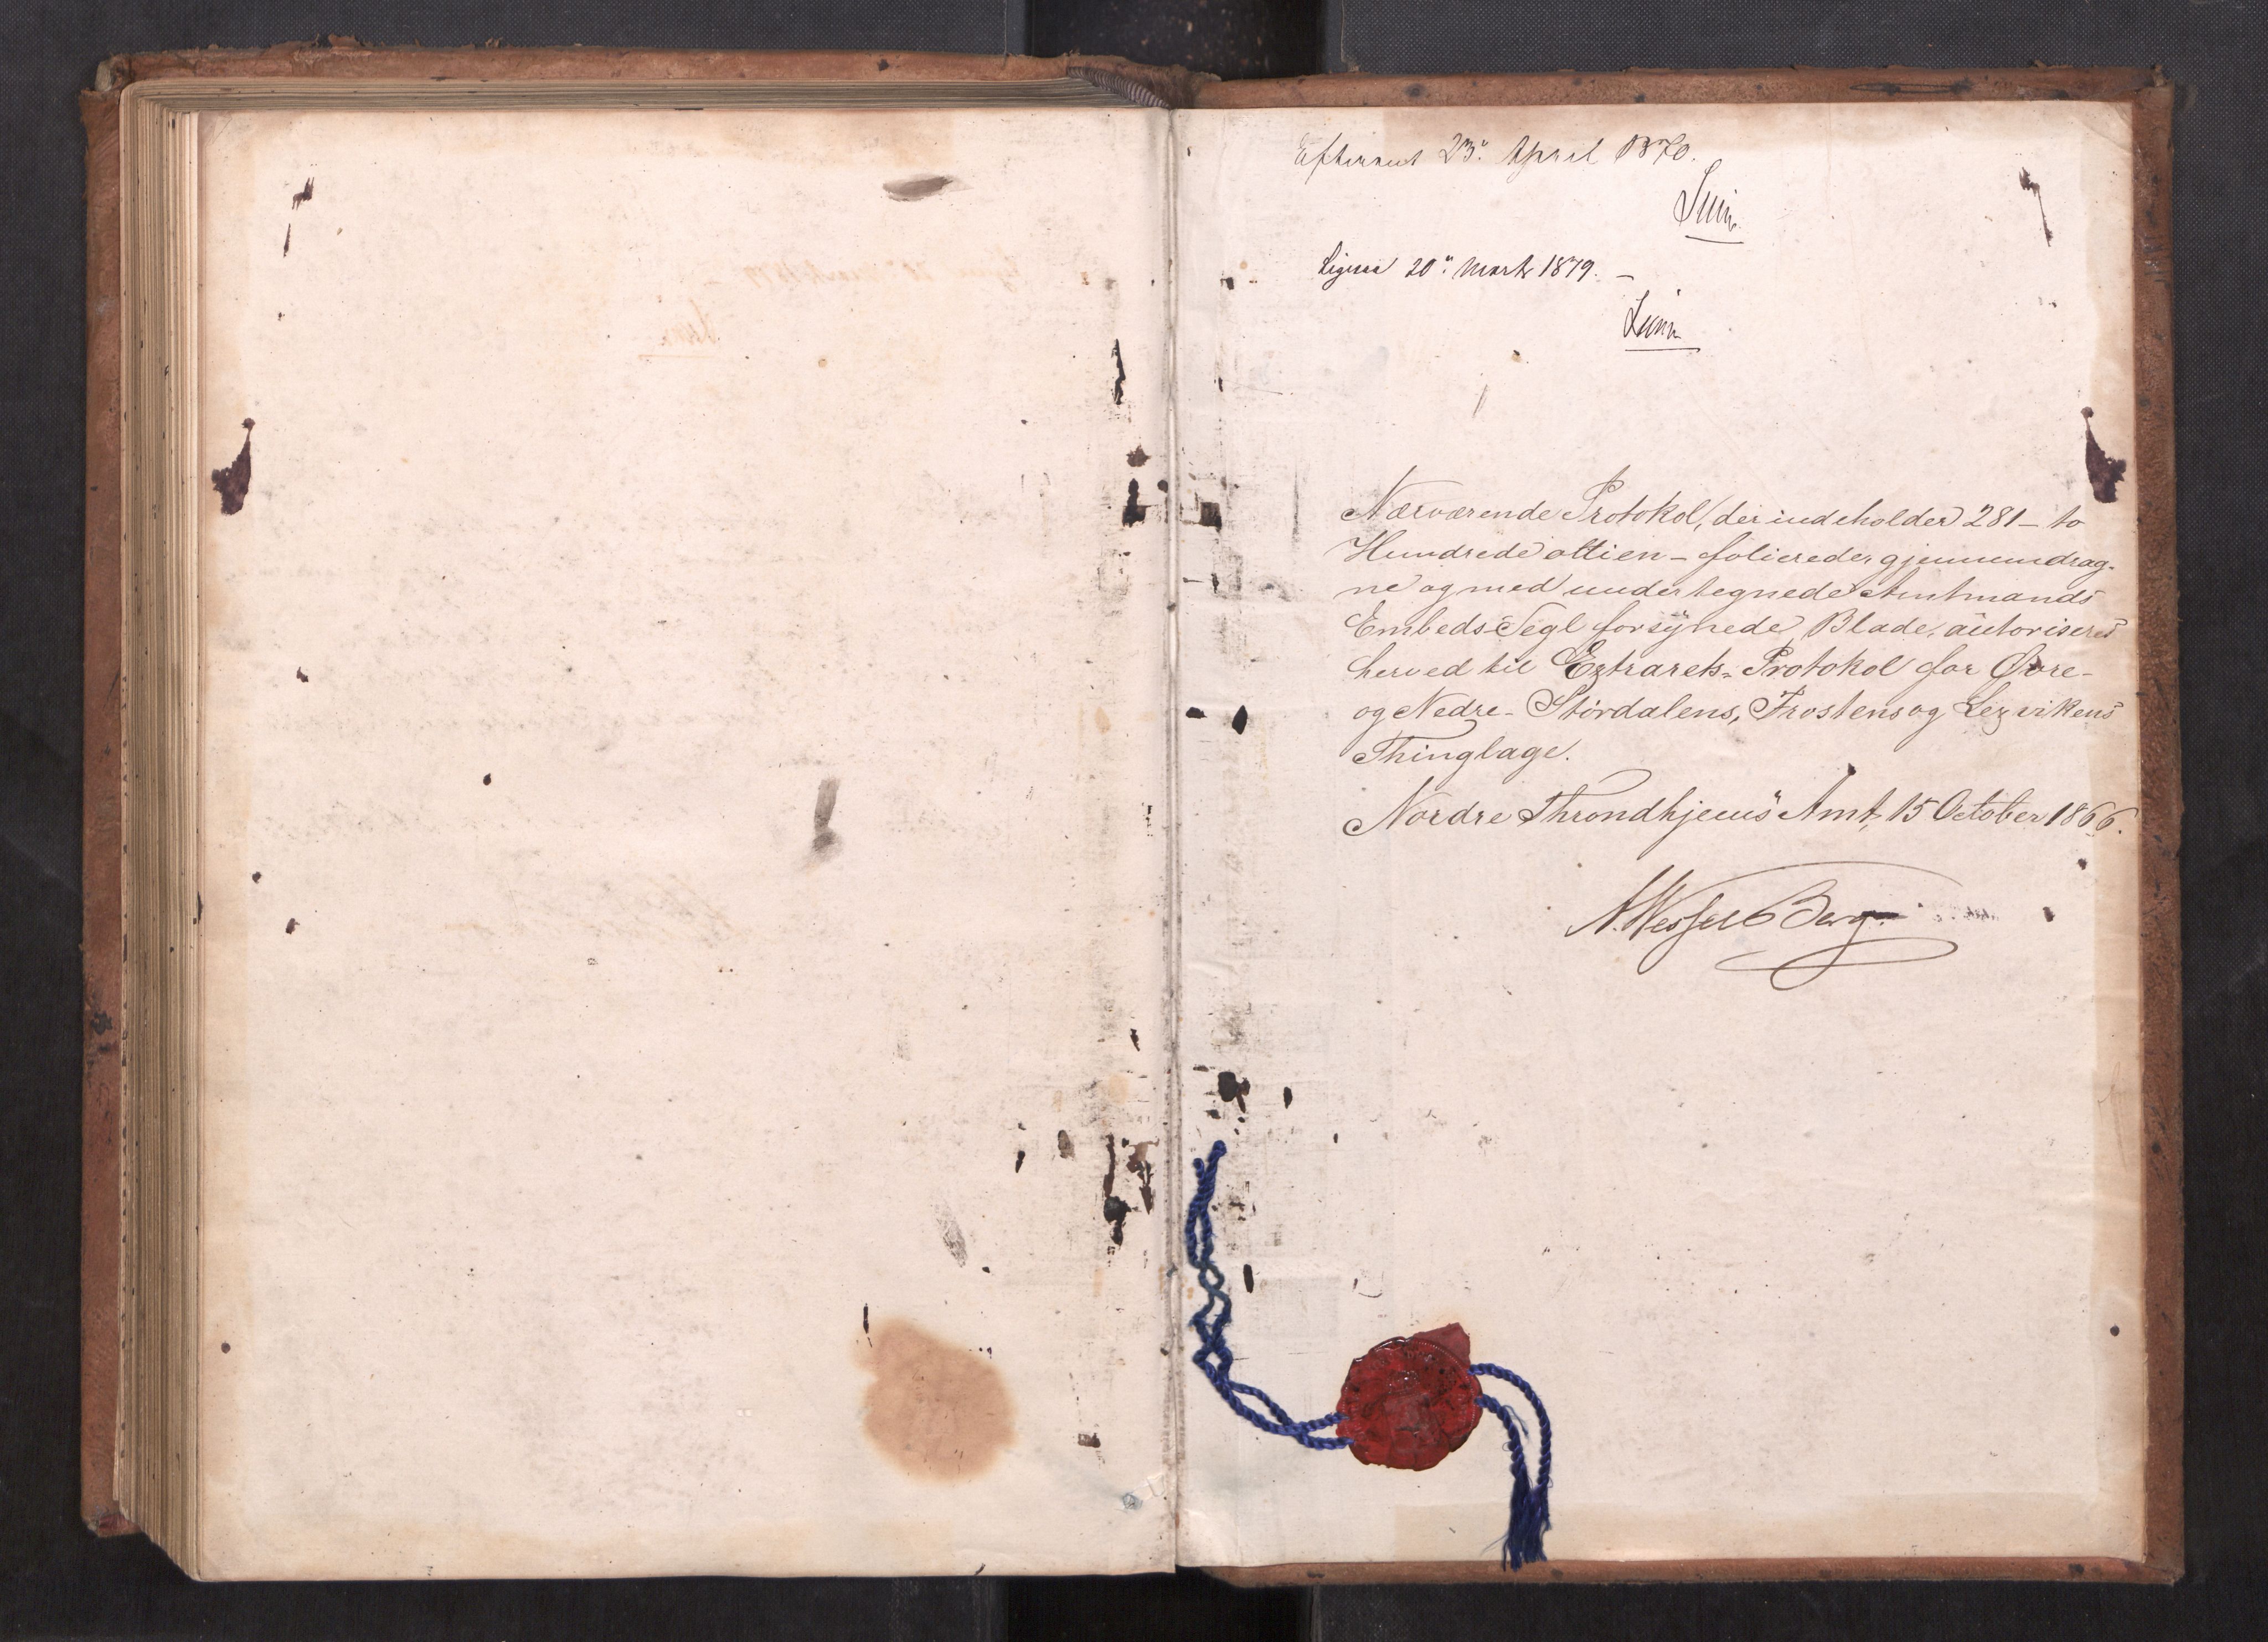 Efterseet 23d. April 1870.
Ligesaa 20d. Marts 1879. –
Nærværende Protokol, der indeholder 281 – to
Hundrede otti en – folierede, gjennemdrag-
ne og med undertegnede Amtmands
Embeds-Segl forsynede, Blade, autoriseres
herved til Extrarets-Protokol for Øvre-
og Nedre-Størdalens, Frostens og Lexvikens
Thinglage.
Nordre Throndhjems Amt, 15 October 1866.
N. Wessel Berg.